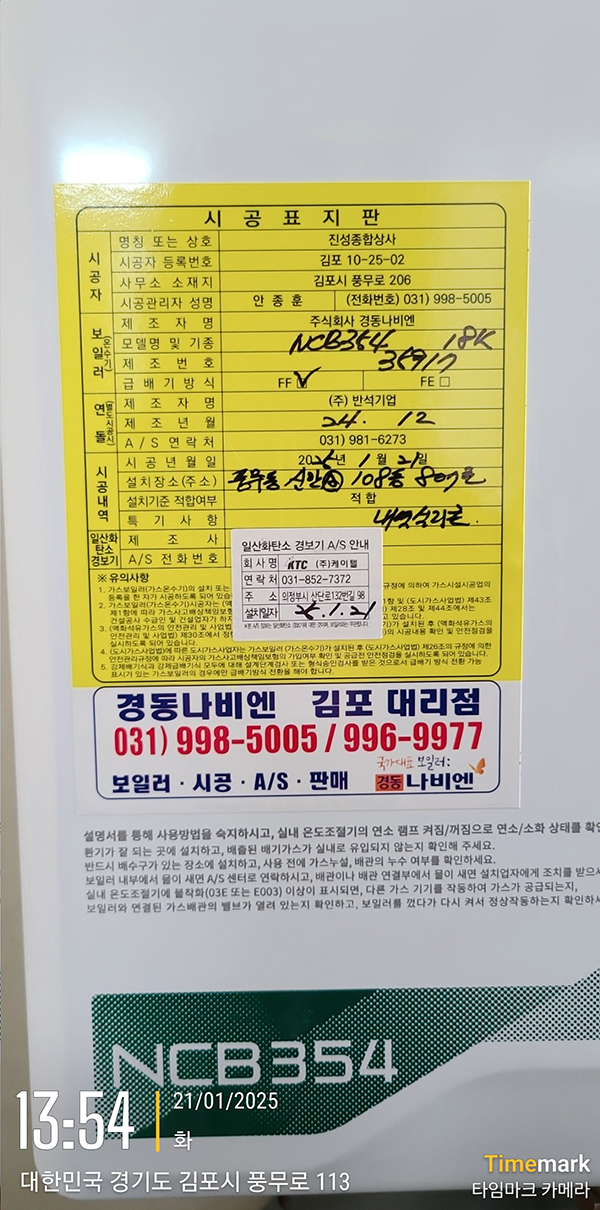 시공표지판
시공자
명칭 또는 상호 진성종합상사
시공자 등록번호 김포 10-25-02
사무소 소재지 김포시 풍무로 206
시공관리자 성명 안종훈 (전화번호) 031) 998-5005
보일러 (온수기)
제조자명 주식회사 경동나비엔
모델명 및 기종 NCB354 18K
제조번호 35917
급배기방식 FF ☑ FE □
연돌 (별도시공시)
제조자명 (주) 반석기업
제조년월 24. 12
A/S 연락처 031) 981-6273
시공내역
시공년월일 2025년 1월 21일
설치장소(주소) 풍무동 신안Ⓐ 108동 807호
설치기준 적합여부 적합
특기사항
일산화탄소 경보기
제조사
A/S 전화번호
일산화탄소 경보기 A/S 안내
회사명 KTC (주)케이텔
연락처 031-852-7372
주소 의정부시 산단로132번길 98
설치일자 25.1.21
※ 유의사항
1. 가스보일러(가스온수기)의 설치 또는 규정에 의하여 가스시설시공업의
등록을 한 자가 시공하도록 되어 있습
2. 가스보일러(가스온수기)시공자는 (액 1항 및 (도시가스사업법) 제43조
제1항에 따라 가스사고배상책임보험 제28조 및 제44조에서는
건설공사 수급인 및 건설업자가 하자
3. (액화석유가스의 안전관리 및 사업법) 기)가 설치된 후 (액화석유가스의
안전관리 및 사업법) 제30조에서 정 의 시공내용 확인 및 안전점검을
실시하도록 되어 있습니다.
4. (도시가스사업법)에 따른 도시가스사업자는 가스보일러 (가스온수기)가 설치된 후 (도시가스사업법) 제26조의 규정에 의한
안전관리규정에 따라 시공자의 가스사고배상책임보험의 가입여부 확인 및 공급전 안전점검을 실시하도록 되어 있습니다.
5. 강제배기식과 강제급배기식 모두에 대해 설계단계검사 또는 형식승인검사를 받은 것으로서 급배기 방식 전환 가능
표시가 있는 가스보일러의 경우에만 급배기방식 전환을 해야 합니다.
경동나비엔 김포 대리점
031) 998-5005 / 996-9977
국가대표 보일러:
보일러 · 시공 · A/S · 판매 경동 나비엔
설명서를 통해 사용방법을 숙지하시고, 실내 온도조절기의 연소 램프 켜짐/꺼짐으로 연소/소화 상태를 확인
환기가 잘 되는 곳에 설치하고, 배출된 배기가스가 실내로 유입되지 않는지 확인해 주세요.
반드시 배수구가 있는 장소에 설치하고, 사용 전에 가스누설, 배관의 누수 여부를 확인하세요.
보일러 내부에서 물이 새면 A/S 센터로 연락하시고, 배관이나 배관 연결부에서 물이 새면 설치업자에게 조치를 받으시
실내 온도조절기에 불착화(03E 또는 E003) 이상이 표시되면, 다른 가스 기기를 작동하여 가스가 공급되는지,
보일러와 연결된 가스배관의 밸브가 열려 있는지 확인하고, 보일러를 껐다가 다시 켜서 정상작동하는지 확인하세
NCB354
13:54
21/01/2025
화
대한민국 경기도 김포시 풍무로 113
Timemark
타임마크 카메라